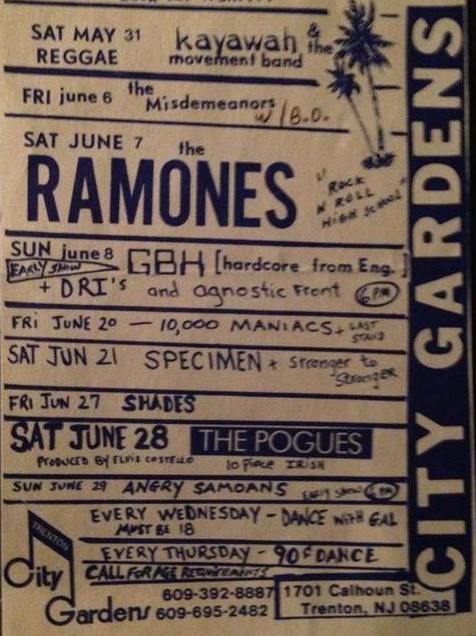 SAT MAY 31 kayawah & the
REGGAE movement band
FRI june 6 the Misdemeanors
w/ B.O.
SAT JUNE 7 the
RAMONES
"ROCK
N' ROLL
HIGH SCHOOL"
SUN june 8 GBH [hardcore from Eng.]
EARLY SHOW
+ DRI's and agnostic Front 6 PM
FRI JUNE 20 — 10,000 MANIACS + LAST
STAND
SAT JUN 21 SPECIMEN + Stronger to
Stronger
FRI JUN 27 SHADES
SAT JUNE 28 THE POGUES
PRODUCED BY ELVIS COSTELLO 10 piece IRISH
SUN JUNE 29 ANGRY SAMOANS EARLY SHOW 6 PM
EVERY WEDNESDAY - DANCE with GAL
MUST BE 18
EVERY THURSDAY - 90¢ DANCE
CALL FOR AGE REQUIREMENTS
TRENTON
City
Gardens
609-392-8887
609-695-2482
1701 Calhoun St.
Trenton, NJ 08638
CITY GARDENS